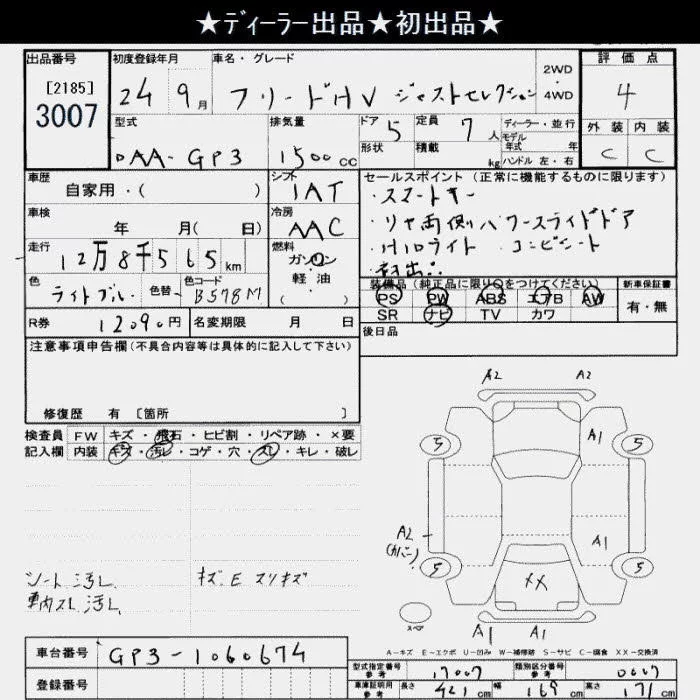 ★ディーラー出品★初出品★
出品番号 初度登録年月 車名・グレード 評価点
[2185] 3007 24 9月 フリードHV ジャストセレクション 2WD・4WD 4
型式 排気量 ドア 5 定員 7人 ディーラー・並行 外装 内装
DAA-GP3 1500cc 形状 積載 kg モデル年式 年 ハンドル 左・右 C C
車歴 シフト セールスポイント(正常に機能するものに限ります)
自家用・( ) IAT ・スマートキー
車検 冷房 ・リヤ両側パワースライドドア
年 月( 日) AAC ・HIDライト ・コンビシート
走行 12万8千565km 燃料 ガソリン 軽油 ( ) ・初出品
色 ライトブルー 色替 色コード B578M 装備品(純正品に限り○をつけてください) 新車保証書
PS PW ABS エアB AW 有・無
SR ナビ TV カワ
R券 12090円 名変期限 月 日 後日品
注意事項申告欄(不具合内容等は具体的に記入して下さい)
修復歴 有 [箇所 ]
検査員 FW キズ・飛石・ヒビ割・リペア跡・×要
記入欄 内装 キズ・汚レ・コゲ・穴・スレ・キレ・破レ
A2 A2
5 A1 5
A2 (カバー) A1
5 XX 5
スペア A1 A1
シート汚レ キズ、E スリキズ
車内スレ汚レ
A-キズ E-エクボ U-凹み W-補修跡 S-サビ C-腐食 XX-交換済
車台番号 GP3-1060674
登録番号
型式指定番号 参考 17007 類別区分番号 参考 0007
車庫証明用 参考 長さ 421cm 幅 169cm 高さ 171cm